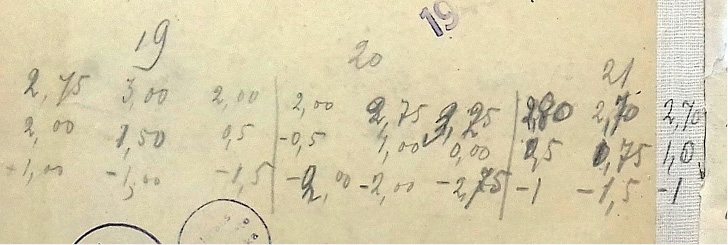 19
19 20 21
2,75 3,00 2,00 2,00 2,75 3,25 2,80 2,70 2,70
2,00 1,50 0,5 -0,5 1,00 0,00 2,5 0,75 1,0
-1,00 -1,00 -1,5 -2,00 -2,00 -2,75 -1 -1,5 -1